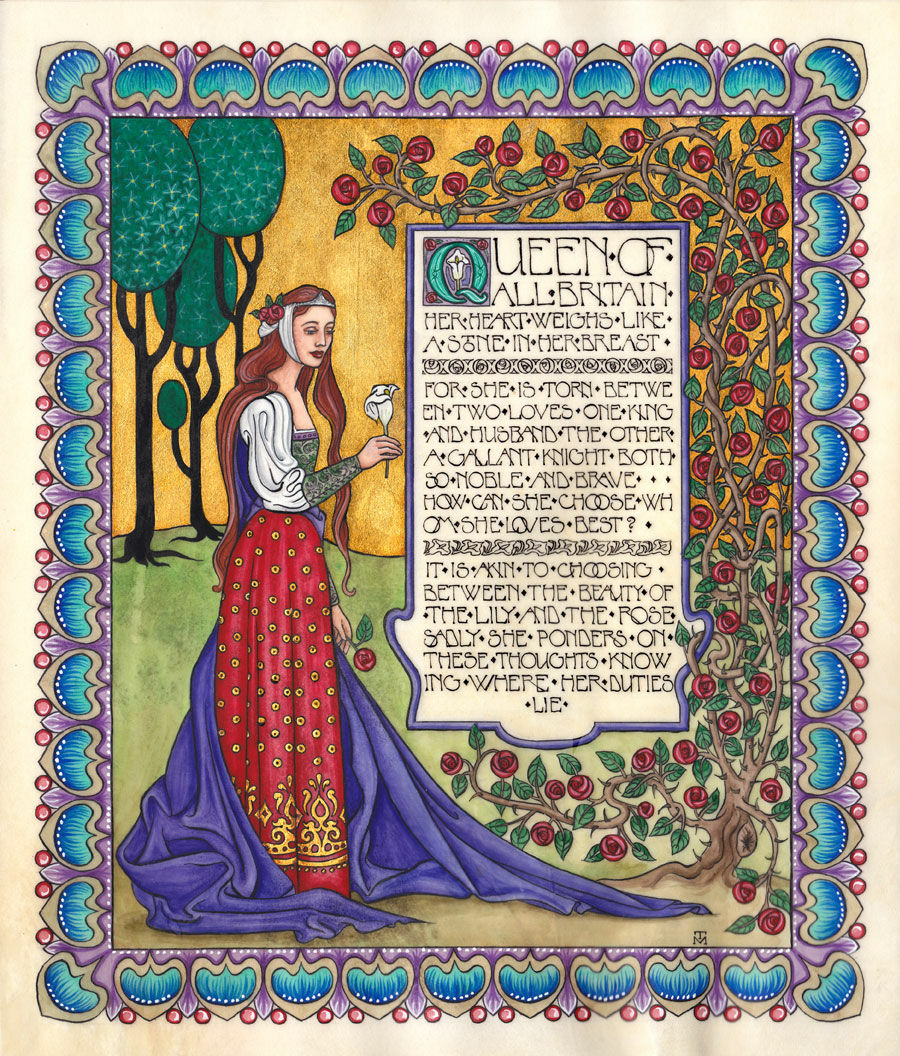 QUEEN·OF·
ALL·BRITAIN·
HER·HEART·WEIGHS·LIKE·
A·STONE·IN·HER·BREAST·
FOR·SHE·IS·TORN·BETWE
EN·TWO·LOVES·ONE·KING
·AND·HUSBAND·THE·OTHER·
A·GALLANT·KNIGHT·BOTH
SO·NOBLE·AND·BRAVE···
HOW·CAN·SHE·CHOOSE·WH
OM·SHE·LOVES·BEST?·
IT·IS·AKIN·TO·CHOOSING·
BETWEEN·THE·BEAUTY·OF
·THE·LILY·AND·THE·ROSE
SADLY·SHE·PONDERS·ON·
THESE·THOUGHTS·KNOW
ING·WHERE·HER·DUTIES
·LIE·